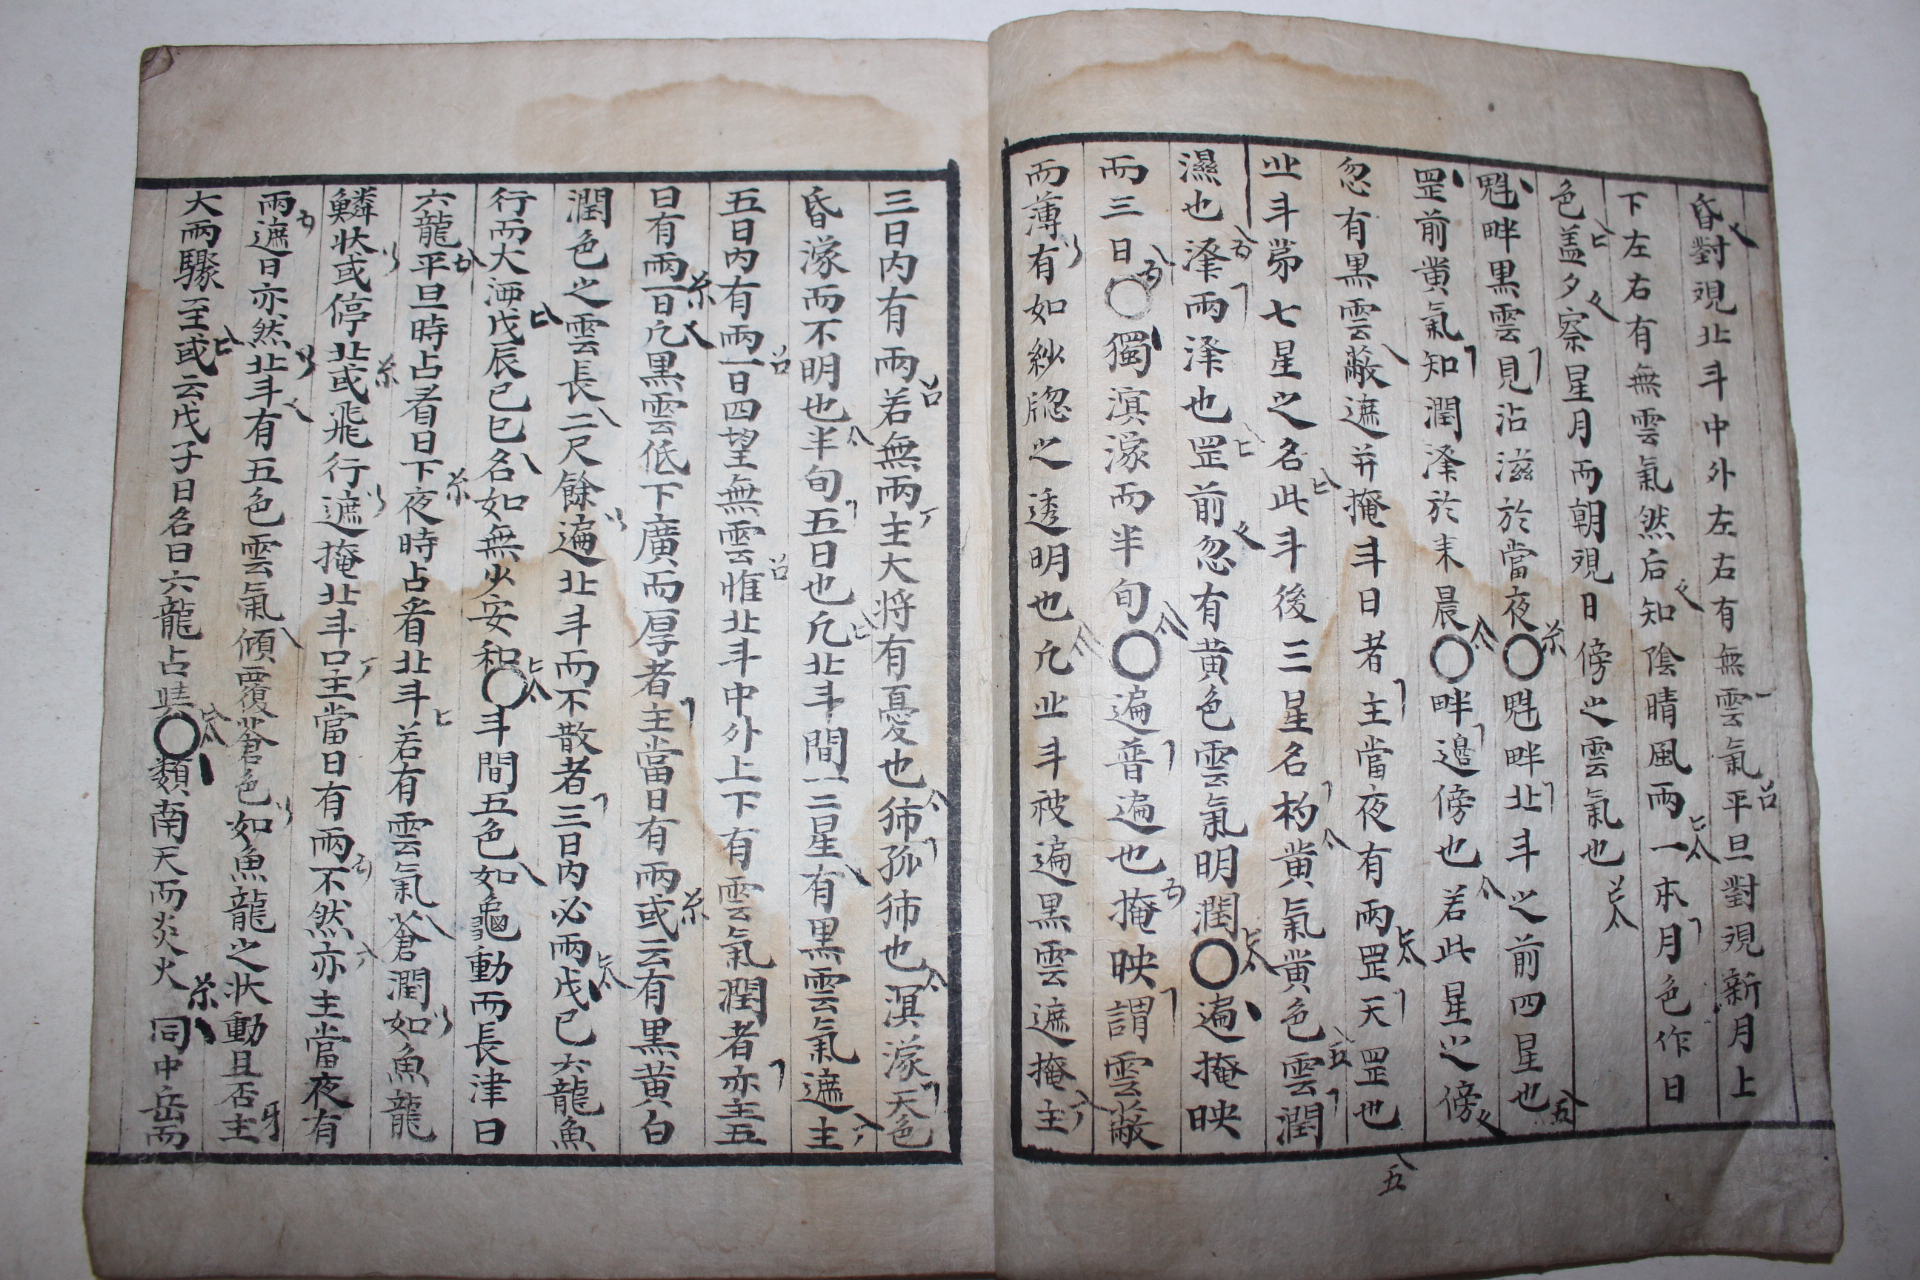 昏對現北斗中外左右有無雲氣平旦對現新月上
下左右有無雲氣然后知陰晴風雨一本月色作日
色盖夕察星月而朝現日傍之雲氣也
魁畔黑雲見沾滋於當夜○魁畔北斗之前四星也
罡前黄氣知潤澤於来晨○畔邊傍也若此星之傍
忽有黑雲蔽遮并掩斗日者主當夜有雨罡天罡也
北斗第七星之名此斗後三星名杓黄氣黄色雲潤
濕也澤雨澤也罡前忽有黄色雲氣明潤○遍掩映
雨三日○獨溟濛而半旬○遍普遍也掩映謂雲蔽
而薄有如紗䆫之透明也凢北斗被遍黑雲遮掩主
三日内有雨若無雨主大将有憂也㹃孤㹃也溟濛天色
昏濛而不明也半旬五日也凢北斗間一二星有黑雲氣遮主
五日内有雨一日四望無雲惟北斗中外上下有雲氣潤者亦主五
日有雨一日凢黑雲低下廣而厚者主當日有雨或云有黑黄白
潤色之雲長二尺餘遍北斗而不散者三日内必雨戊己六龍魚
行而大洒戊辰己巳名如無少安和○斗間五色如龜動而長津日
六龍平旦時占看日下夜時占看北斗若有雲氣蒼潤如魚龍
鱗状或停北或飛行遮掩北斗口主當日有雨不然亦主當夜有
雨遮日亦然北斗有五色雲氣傾覆蒼色如魚龍之状動且否主
大雨驟至或云戊子日名曰六龍占𫀆○類南天而炎火同中岳而